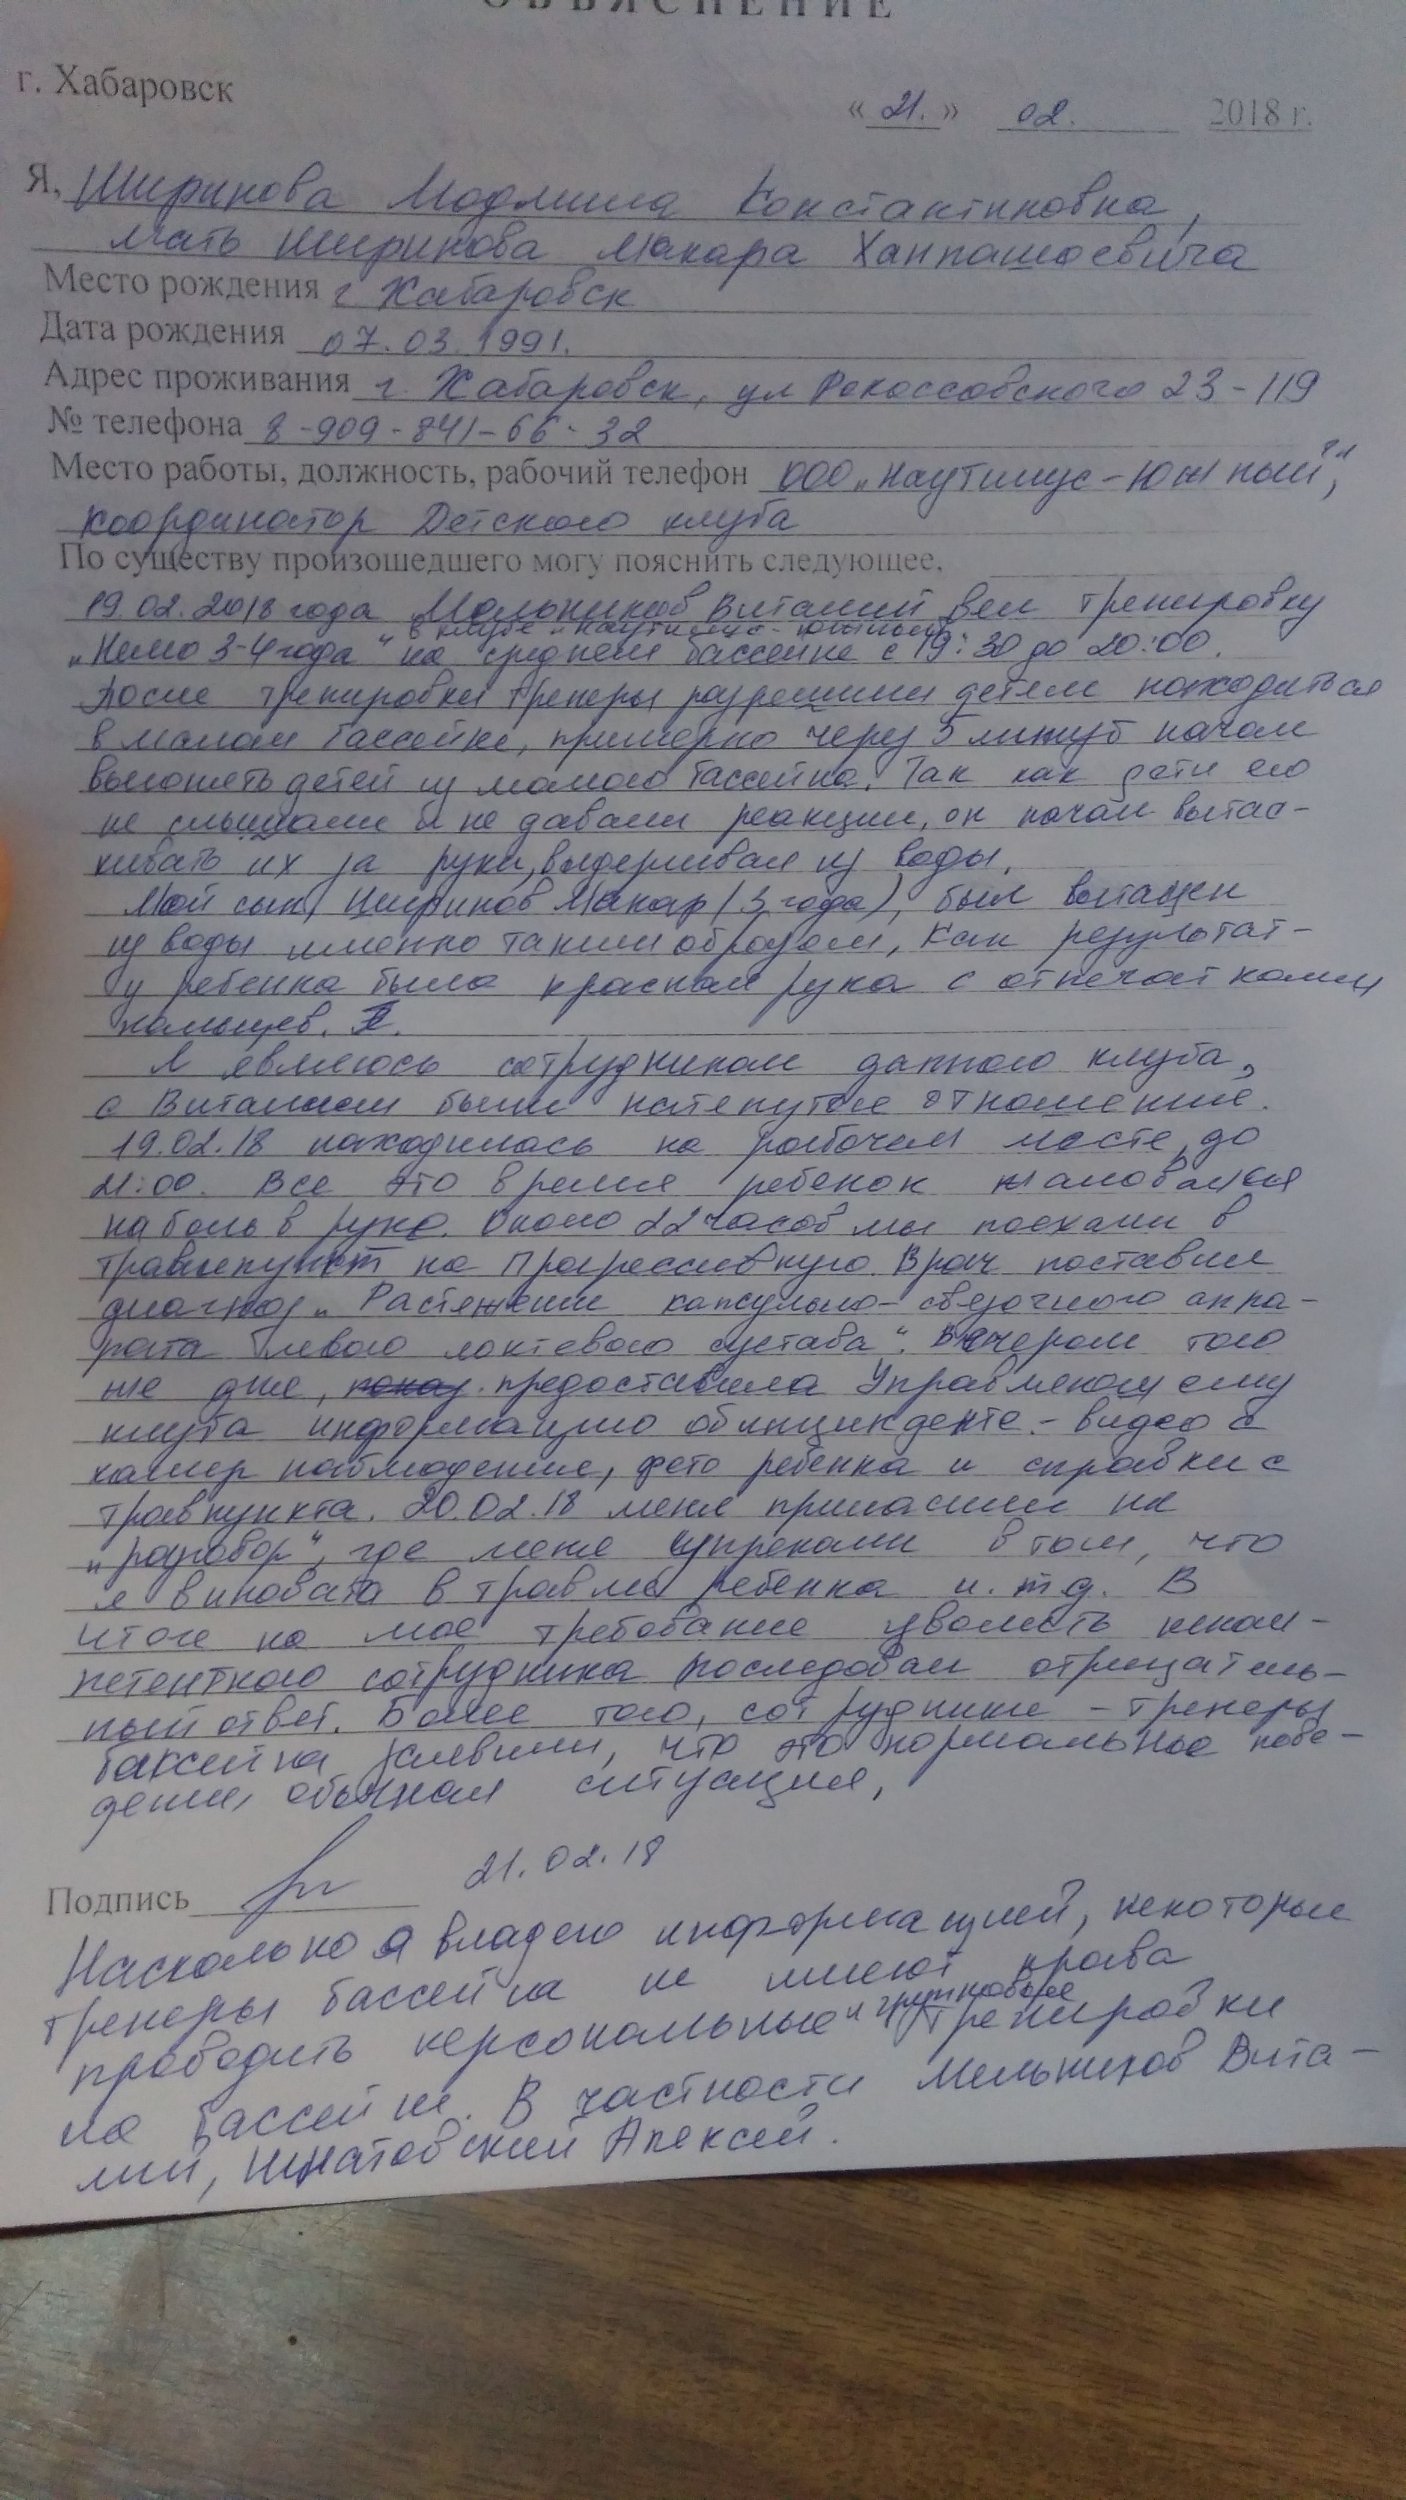 ОБЪЯСНЕНИЕ
г. Хабаровск
« 21. » 02. 2018 г.
Я, Ширинова Людмила Константиновна,
мать Ширинова Макара Ханпашаевича
Место рождения г Хабаровск
Дата рождения 07.03.1991.
Адрес проживания г. Хабаровск, ул Рокоссовского 23-119
№ телефона 8-909-841-66-32
Место работы, должность, рабочий телефон ООО „Наутилус-Южный",
координатор Детского клуба
По существу произошедшего могу пояснить следующее.
19.02.2018 года Мельников Виталий вел тренировку
в клубе „Наутилус-Южный"
„Немо 3-4 года" на среднем бассейне с 19:30 до 20:00.
После тренировки тренеры разрешили детям находиться
в малом бассейне, примерно через 5 минут начал
выгонять детей из малого бассейна. Так как дети его
не слышали и не давали реакции, он начал вытас-
кивать их за руки, выдергивая из воды.
Мой сын, Ширинов Макар (3 года), был вытащен
из воды именно таким образом, Как результат-
у ребенка была красная рука с отпечатками
пальцев.
Я являюсь сотрудником данного клуба,
с Виталием были натянутые отношения.
19.02.18 находилась на рабочем месте до
21:00. Все это время ребенок жаловался
на боль в руке. Около 22 часов мы поехали в
травмпункт на Прогрессивную. Врач поставил
диагноз „Растяжение капсульно-связочного аппа-
рата левого локтевого сустава". Вечером того
же дня, предоставила Управляющему
клуба информацию об инциденте - видео с
камер наблюдения, фото ребенка и справки с
травпункта. 20.02.18 меня пригласили на
„разговор", где меня упрекали в том, что
я виновата в травме ребенка и. т.д. В
итоге на мое требование уволить неком-
петентного сотрудника последовал отрицатель-
ный ответ. Более того, сотрудники - тренеры
бассейна заявили, что это нормальное пове-
дение, обычная ситуация,
Подпись 21.02.18
Насколько я владею информацией, некоторые
тренеры бассейна не имеют права
и групповые
проводить персональные тренировки
на бассейне. В частности Мельников Вита-
лий, Игнатовский Алексей.